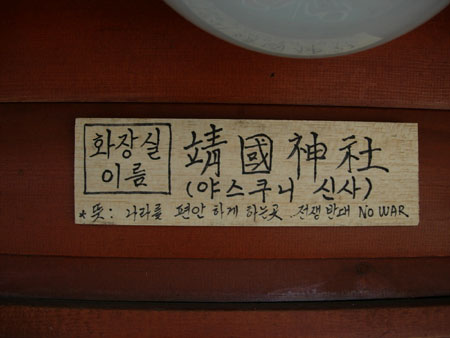 화장실
이름
靖國神社
(야스쿠니 신사)
*뜻: 나라를 편안하게 하는곳 전쟁반대 NO WAR